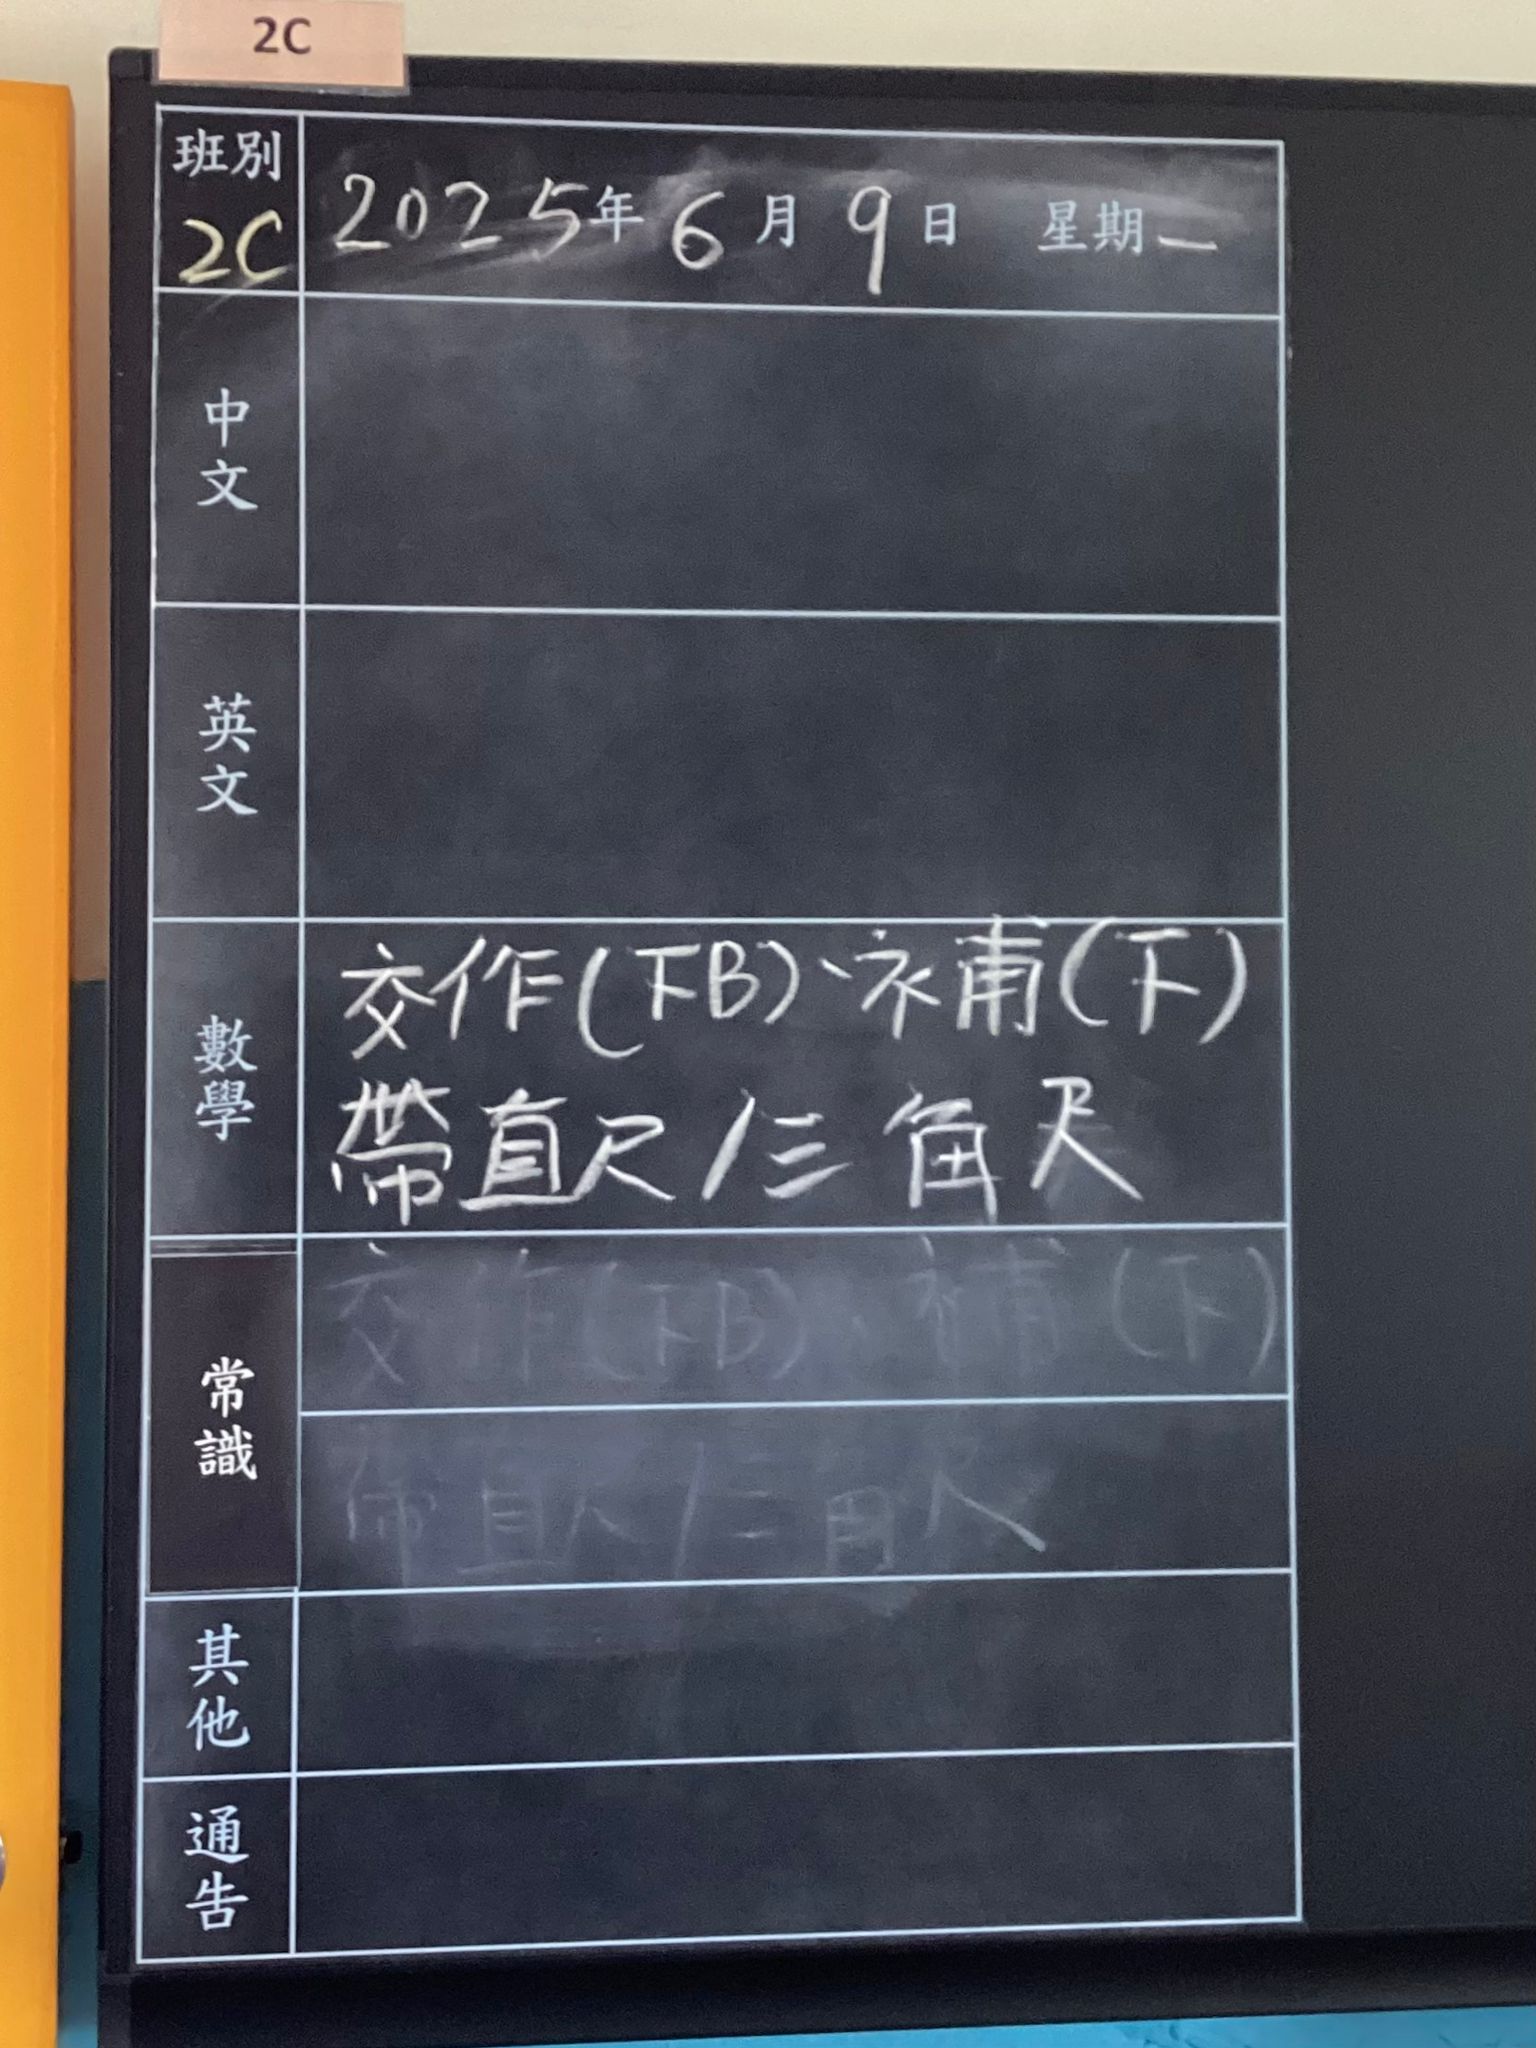 2C
班別
2C
2025年6月9日 星期一
中文
英文
數學
交作(下B)、補(下)
帶直尺/三角尺
常識
交作(下B)、補(下)
帶直尺/三角尺
其他
通告